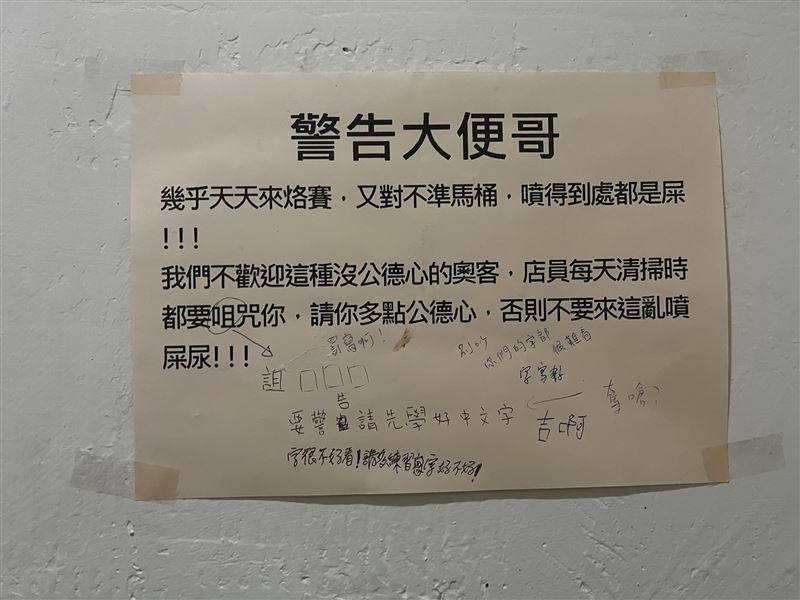 警告大便哥
幾乎天天來烙賽，又對不準馬桶，噴得到處都是屎
!!!
我們不歡迎這種沒公德心的奧客，店員每天清掃時
都要咀咒你，請你多點公德心，否則不要來這亂噴
屎尿!!!
罰寫啊!
別吵
你們的字都很難看
詛□□□
字寫対
奪嗆?
告
要警請先學好中文字
吉啊
字很不好看!請多練習寫字好不好!